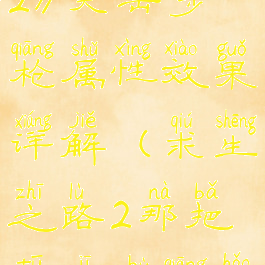 qiāng shǔ xìng xiào guǒ
枪属性效果
xiáng jiě qiú shēng
详解（求生
zhī lù nà bǎ
之路2那把